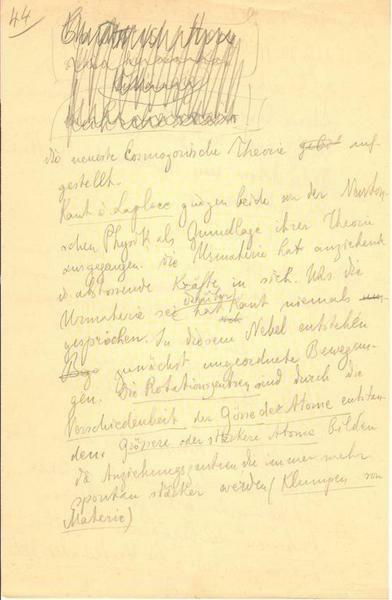 44
die neueste Cosmogonische Theorie auf-
gestellt.
Kant u. Laplace gingen beide von der Newton-
schen Physik als Grundlage ihrer Theorie
ausgegangen. Die Urmaterie hat anziehende
u. abstossende Kräfte in sich. Was die
Urmaterie sei hat Kant niemals
gesprochen. In diesem Nebel entstehen
zunächst ungeordnete Bewegun-
gen. Die Rotationszentren sind durch die
Verschiedenheit der Grösse der Atome entstan-
den. Grössere oder stärkere Atome bilden
die Anziehungszentren die immer mehr
spontan stärker werden (Klumpen von
Materie)